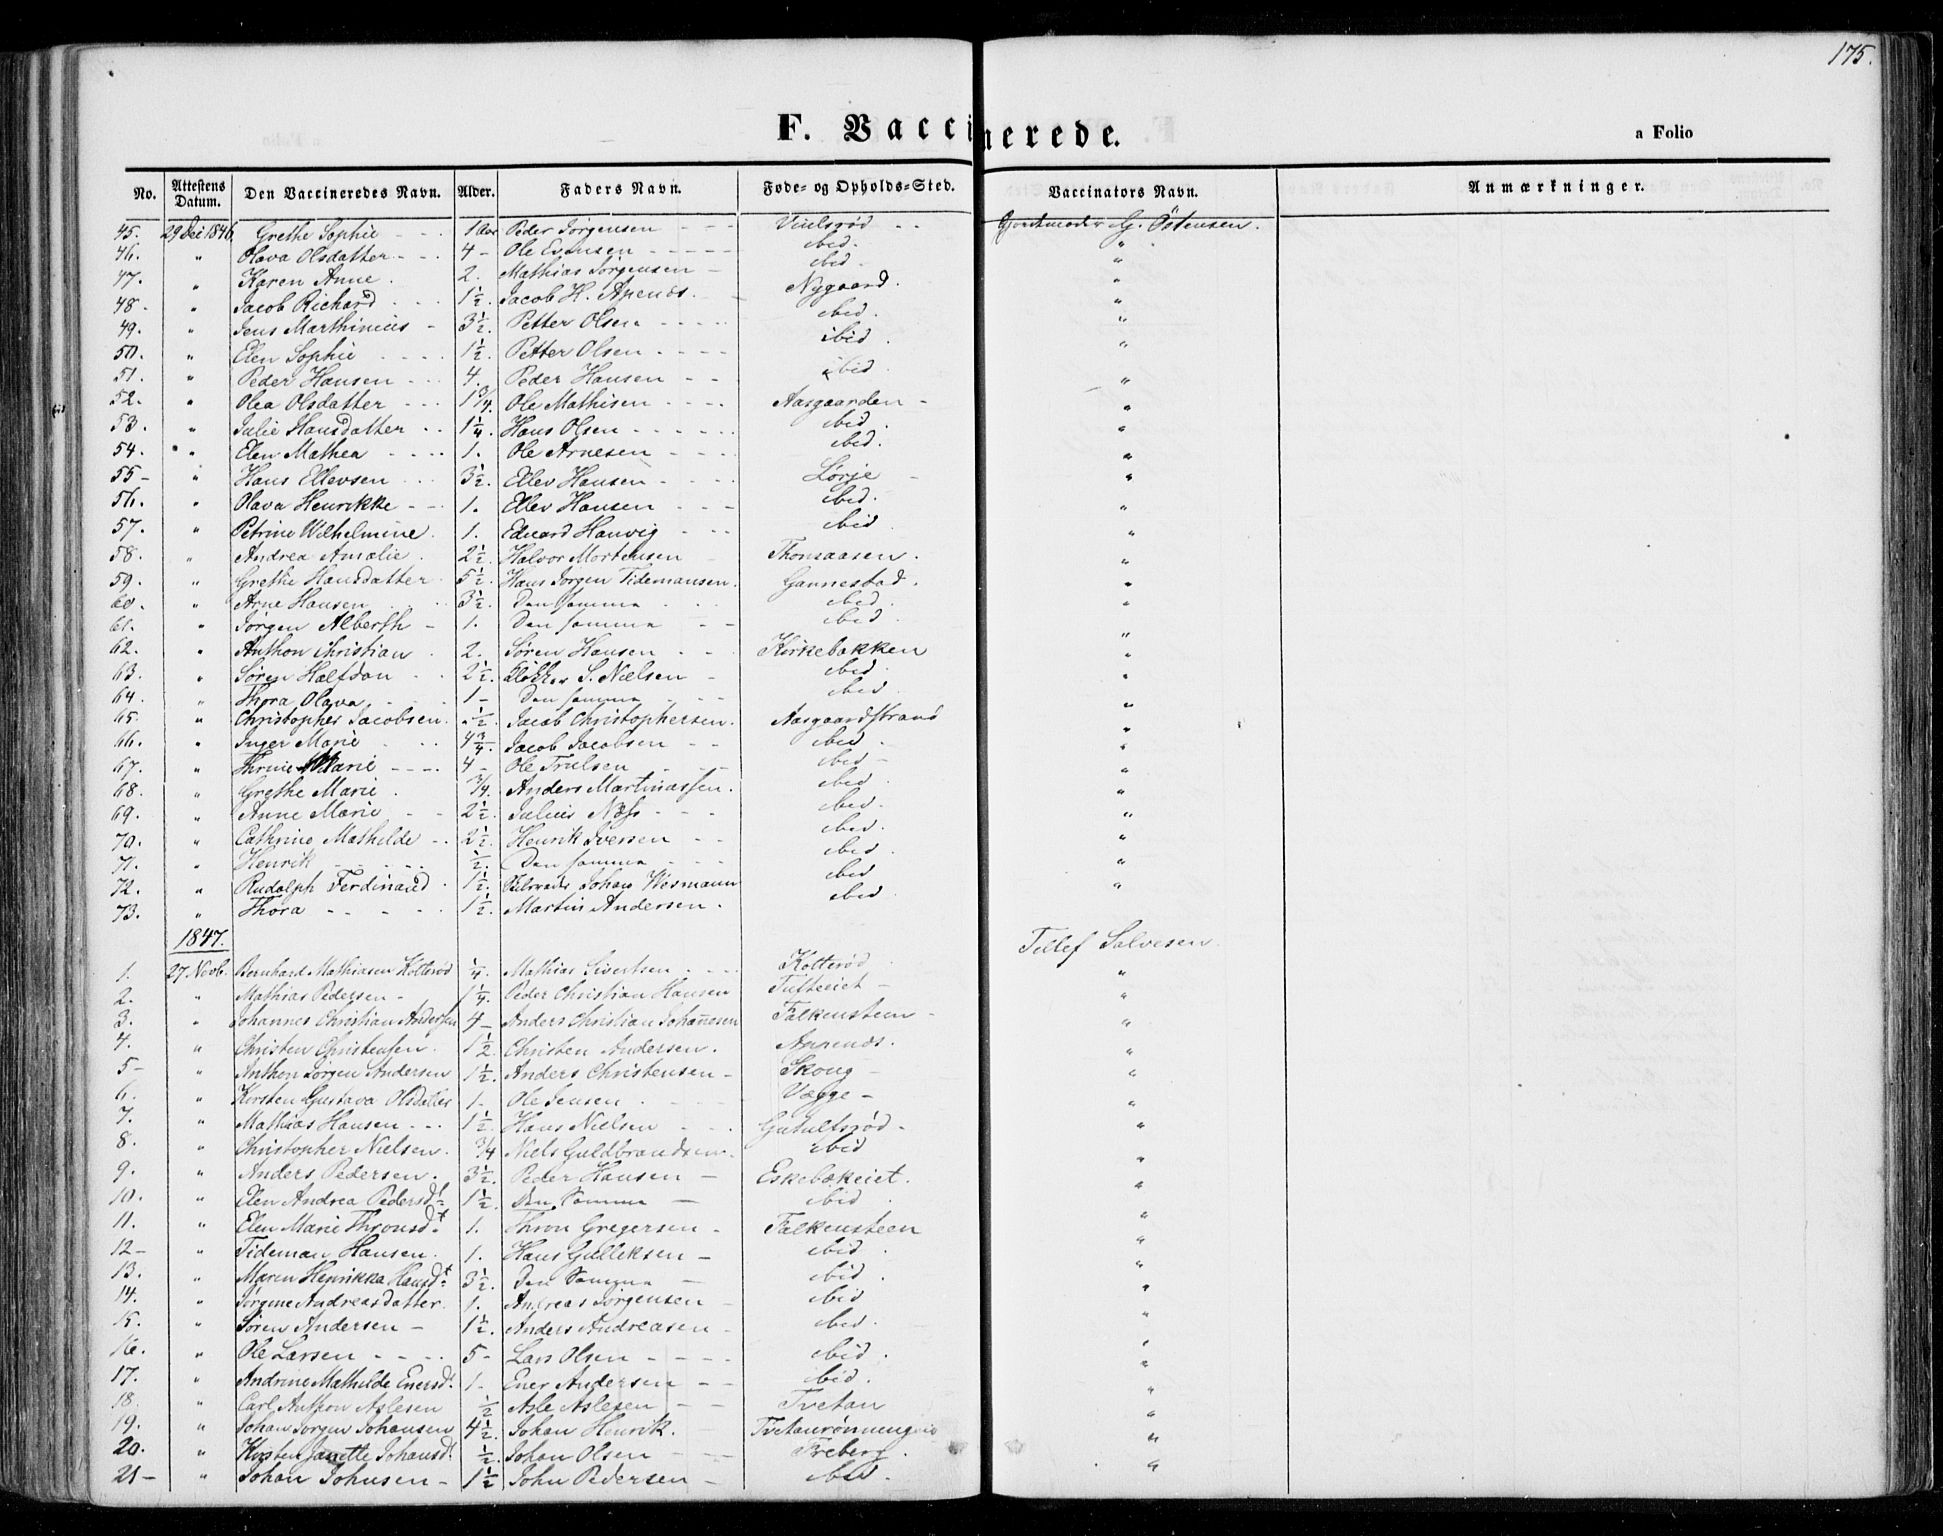 175.
F. Vaccinerede.
a Folio
No. Attestens Datum. Den Vaccineredes Navn. Alder. Faders Navn. Føde- og Opholds-Sted. Vaccinators Navn. Anmærkninger.
45. 29 Dec 1846. Grethe Sophie - - - 1 Aar Peder Jørgensen - - - Gjordemoder G. Östensen.
46. " Olava Olsdatter - - - 4 - Ole Evensen - - - - ibid. "
47. " Karen Anne. 2. Mathias Jørgensen - ibid - "
48 - " Jacob Richard - - - 1½. Jacob H. Apenæs. - Nygaard. "
49. " Jens Marthinius - 3½. Petter Olsen - - - - ibid. "
50. " Elen Sophie - - - - 1½. Petter Olsen - - - - ibid. "
51. " Peder Hansen - - - 4. Peder Hansen - - ibid. "
52. " Olea Olsdatter - - - 1¾. Ole Mathisen - - - - Aasgaarden - "
53. " Julie Hansdatter - - 1¼. Hans Olsen - - - - - ibid. "
54. " Elen Mathea - - - - 1. Ole Arnesen - - - - ibid. "
55 - " Hans Ellevsen - - - 3½. Ellev Hansen - - - - Lørje - "
56. " Olava Henrikke - - - 1. Ellev Hansen - - - ibid. "
57. " Petrine Wilhelmine. 1. Eduard Hanvig - - - ibid. "
58. " Andrea Amalie. 2½. Halvor Mortensen - Thomaasen. "
59. " Grethe Hansdatter. 5½. Hans Jørgen Tidemansen. Gannestad. "
60. " Arne Hansen 3½. Den samme - - - ibid. "
61. " Jørgen Alberth - 1. Den samme - - ibid. "
62. " Anthon Christian. 2. Søren Hansen - - - Kirkebakken "
63. " Søren Halfdan - - 2½. Klokker S. Nielsen - ibid. "
64. " Thora Olava - - 1 - Den samme - - - ibid. "
65. " Christopher Jacobsen. ½. Jacob Christophersen. Aasgaardstrand "
66. " Inger Marie - - - 4¾. Jacob Jacobsen - - ibid - "
67. " Thrine Marie - - - - 4 - Ole Trulsen - - - ibid - "
68. " Grethe Marie. ¾. Anders Martinassen. ibid. "
69. " Anne Marie - - 2½. Julius Næss - - - ibid. "
70. " Cathrine Mathilde - - 2½. Henrik Iversen - - ibid. "
71. " Henrik - - - - - ½. Den samme - - - ibid. "
72. " Rudolph Ferdinand. 1½. Johan Wesmann ibid "
73. " Thora - - - - - 1½. Martin Andersen. ibid.
1847. Tellef Salvesen.
1. 27 Novb. Bernhard Mathiasen Kotterød ¼. Mathias Sivertsen - - - Kotterød "
2. " Mathias Pedersen - 1¼. Peder Christian Hansen Tufteeiet - "
3. " Johannes Christian Andersen 4 - Anders Christian Johañesen Falkensteen - "
4. " Christen Christensen. 1½ Christen Andersen. Appenæs. "
5 - " Anthon Jørgen Andersen 1½. Anders Christensen - Skoug - "
6. " Kirsten Gustava Olsdatter 1. Ole Jensen. Vægge - "
7. " Mathias Hansen - - - 1½. Hans Nielsen - - - Gutultsrød - "
8. " Christopher Nielsen. ¾ Niels Guldbrandsen. ibid "
9. " Anders Pedersen. 3½. Peder Hansen - Eskebækeiet. "
10. " Elen Andrea Pedersdt. 1½. Den Samme - ibid. "
11. " Elen Marie Thronsdt. 1. Thron Gregersen - Falkensteen "
12 - " Tideman Hansen. 1. Hans Gulleksen - ibid. "
13. " Maren Henrikka Hansdt. 3½. Den Samme - ibid. "
14. " Jørgine Andreasdatter. 1. Andreas Jørgensen - ibid "
15. " Søren Andersen - 1½. Anders Andreasen - ibid. "
16. " Ole Larsen - - - - 5 - Lars Olsen - - - - ibid. "
17. " Andrine Mathilde Enersdt. 1. Ener Andersen - - ibid. "
18. " Carl Anthon Aslesen ½ Asle Aslesen - - Tvetan "
19. " Johan Jørgen Johansen 4½. Johan Henrik. "
20. " Kirsten Janette Johansdt. ½. Johan Olsen - - Freberg. "
21 - " Johan Johnsen - 1½ John Pedersen - ibid. "